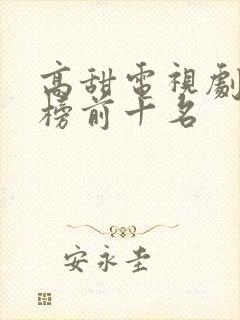 高甜電視劇
榜前十名
安永圭